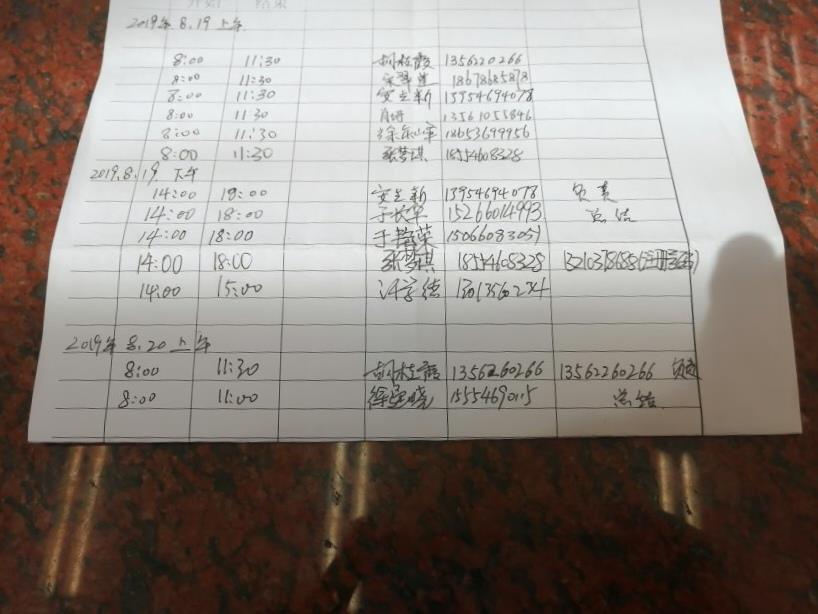 开始 结束
2019年8.19上午
8:00 11:30 胡桂霞 1356220266
8:00 11:30 18678685878
8:00 11:30 安立新 13954694078
8:00 11:30 13561055846
8:00 11:30 18653699956
8:00 11:30 张梦琪 18554608328
2019.8.19 下午
14:00 18:00 安立新 13954694078 负责
14:00 18:00 于长军 15266014993 总结
14:00 18:00 于艳荣 15066083051
14:00 18:00 张梦琪 18554608328
14:00 15:00
2019年8.20上午
8:00 11:30 胡桂霞 13562260266 13562260266 负责
8:00 11:00 总结